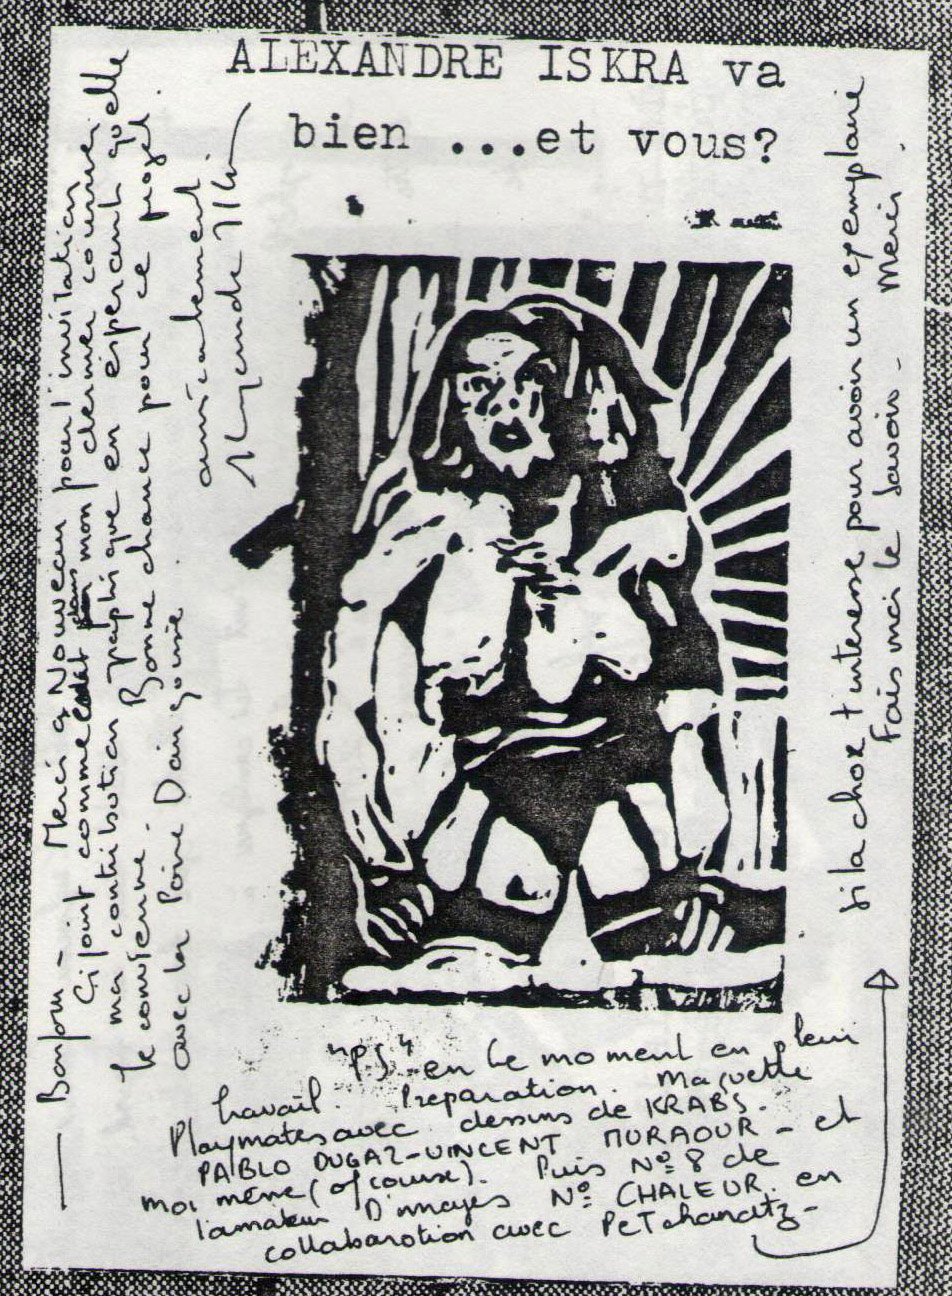 ALEXANDRE ISKRA va
bien ...et vous?
Bonjour - Merci à Nouveau pour l'invitation
Ci joint comme dans mon dernier courrier
ma contribution graphique en espérant qu'elle
te convienne. Bonne chance pour ce projet.
avec la Poire D'angoisse
amicalement
"PS" en ce moment en plein
travail. Preparation. Maquette
Playmates avec dessins de KRABS.
PABLO DUGAZ-VINCENT MURAOUR - et
moi même (of course). Puis Nº 8 de
l'amateur D'images Nº CHALEUR. en
collabaration avec
si la chose t'interesse pour avoir un exemplaire
Fais moi le savoir - Merci.